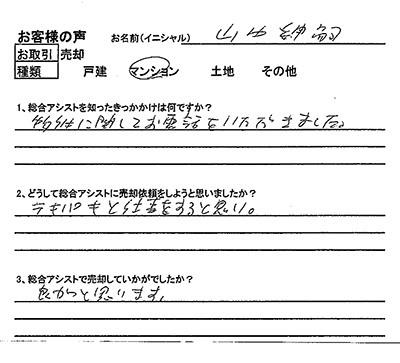 お客様の声 お名前(イニシャル) 山中
お取引 売却
種類 戸建 マンション 土地 その他
1、総合アシストを知ったきっかけは何ですか?
物件に関してお電話をいただきました。
2、どうして総合アシストに売却依頼をしようと思いましたか?
テキパキと仕事をすると思い。
3、総合アシストで売却していかがでしたか?
良かったと思います。